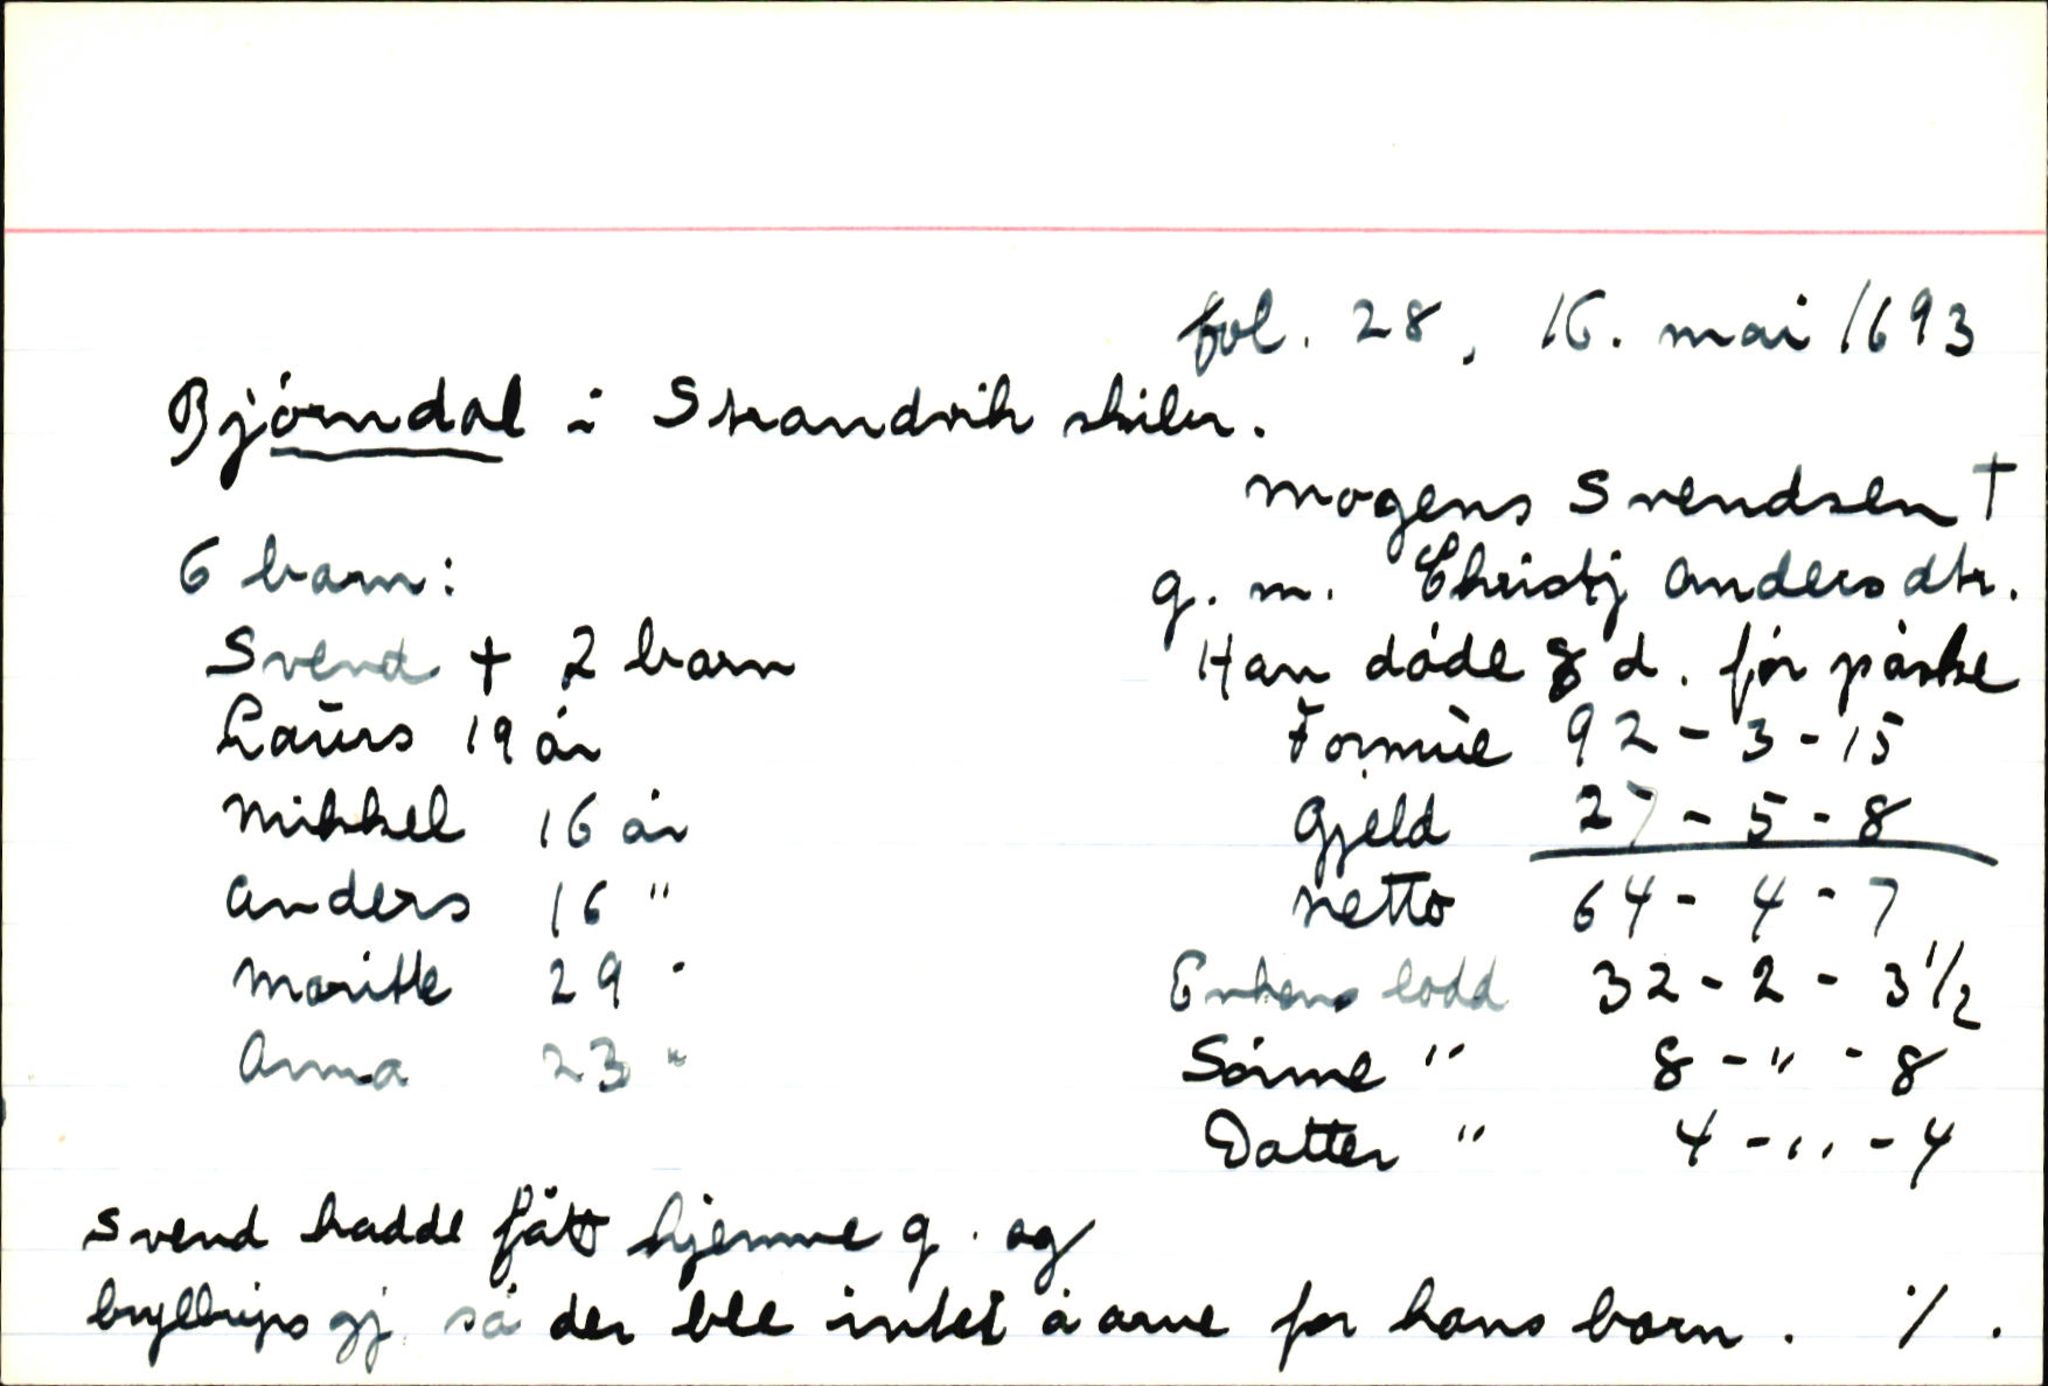 fol. 28, 16. mai 1693
Bjørndal i Strandvik skibr.
Mogens Svendsen †
g. m. Christj Andersdtr.
Han døde 8 d. før påske
Formue 92 - 3 - 15
Gjeld 27 - 5 - 8
Netto 64 - 4 - 7
Enkens lodd 32 - 2 - 3 1/2
Sønne " 8 - " - 8
Datter " 4 - " - 4
6 barn:
Svend † 2 barn
Laurs 19 år
Mikkel 16 år
Anders 16 "
Maritte 29 "
Anna 23 "
Svend hadde fått hjemme g. og
bryllups gj. så der ble intet å arve for hans barn. ·/.